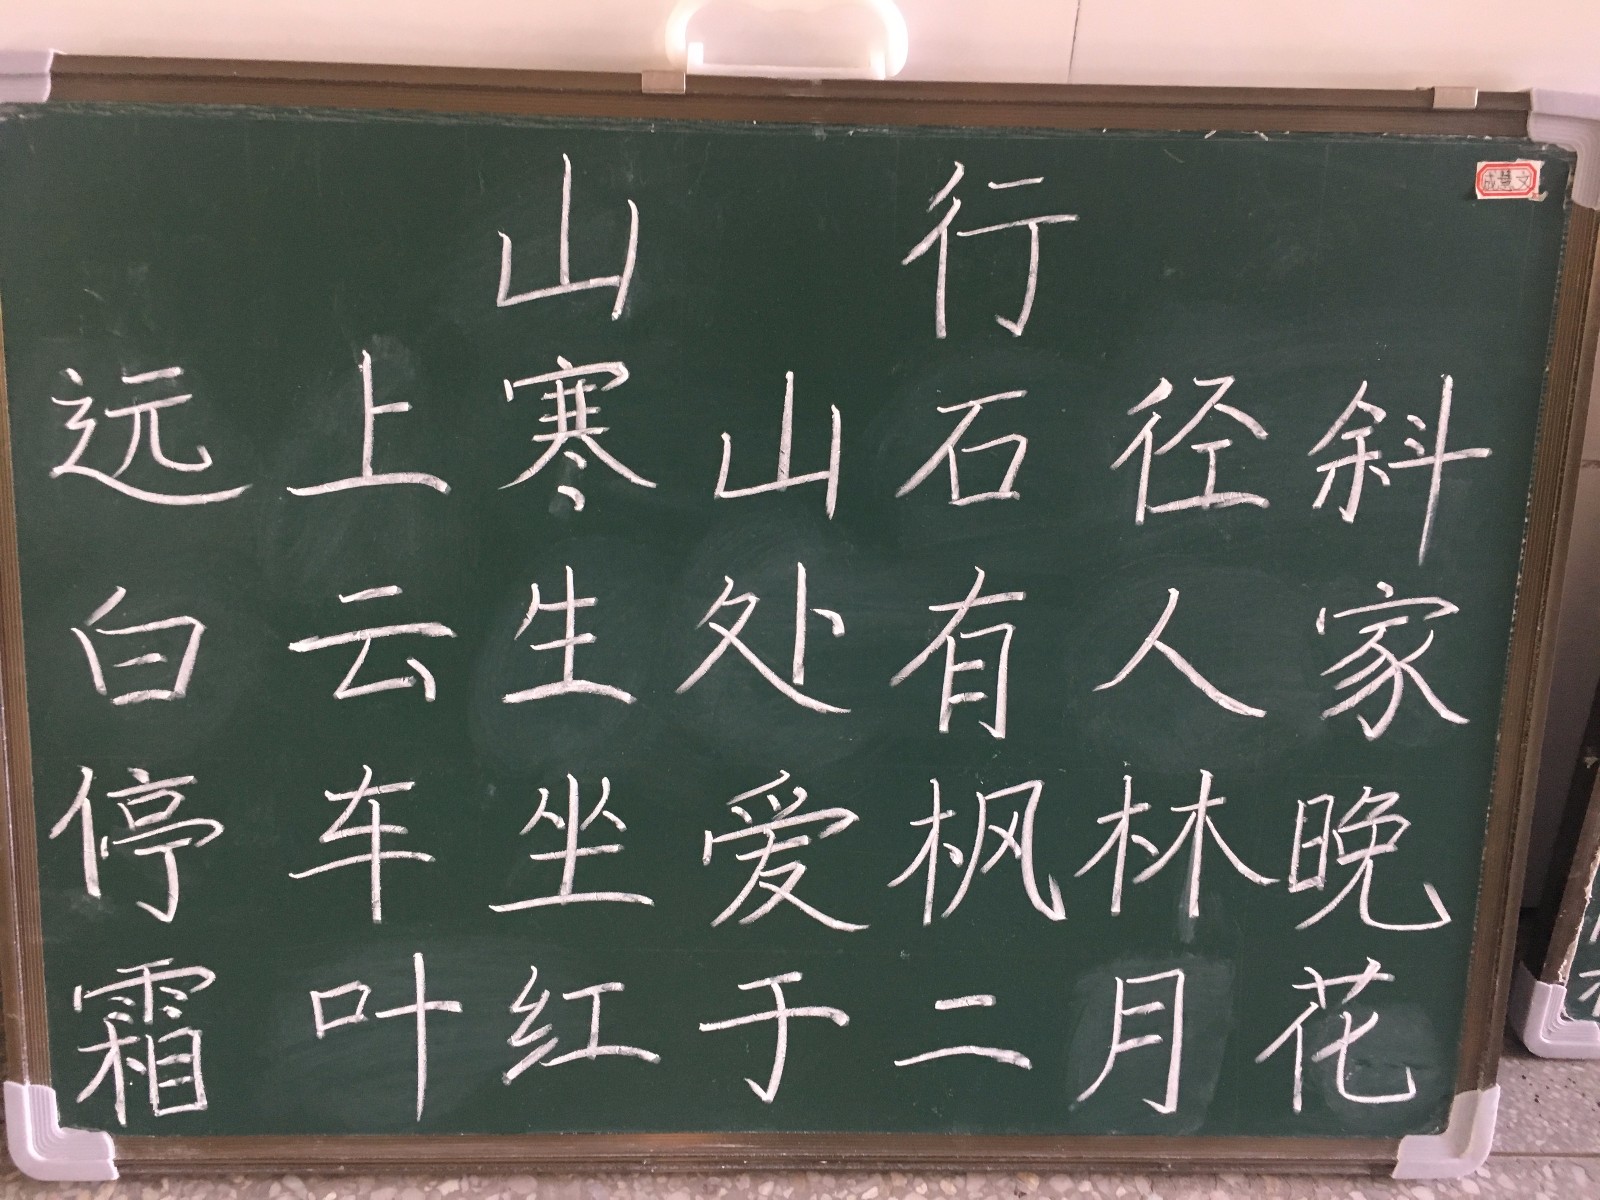 山行
成慧文
远上寒山石径斜
白云生处有人家
停车坐爱枫林晚
霜叶红于二月花